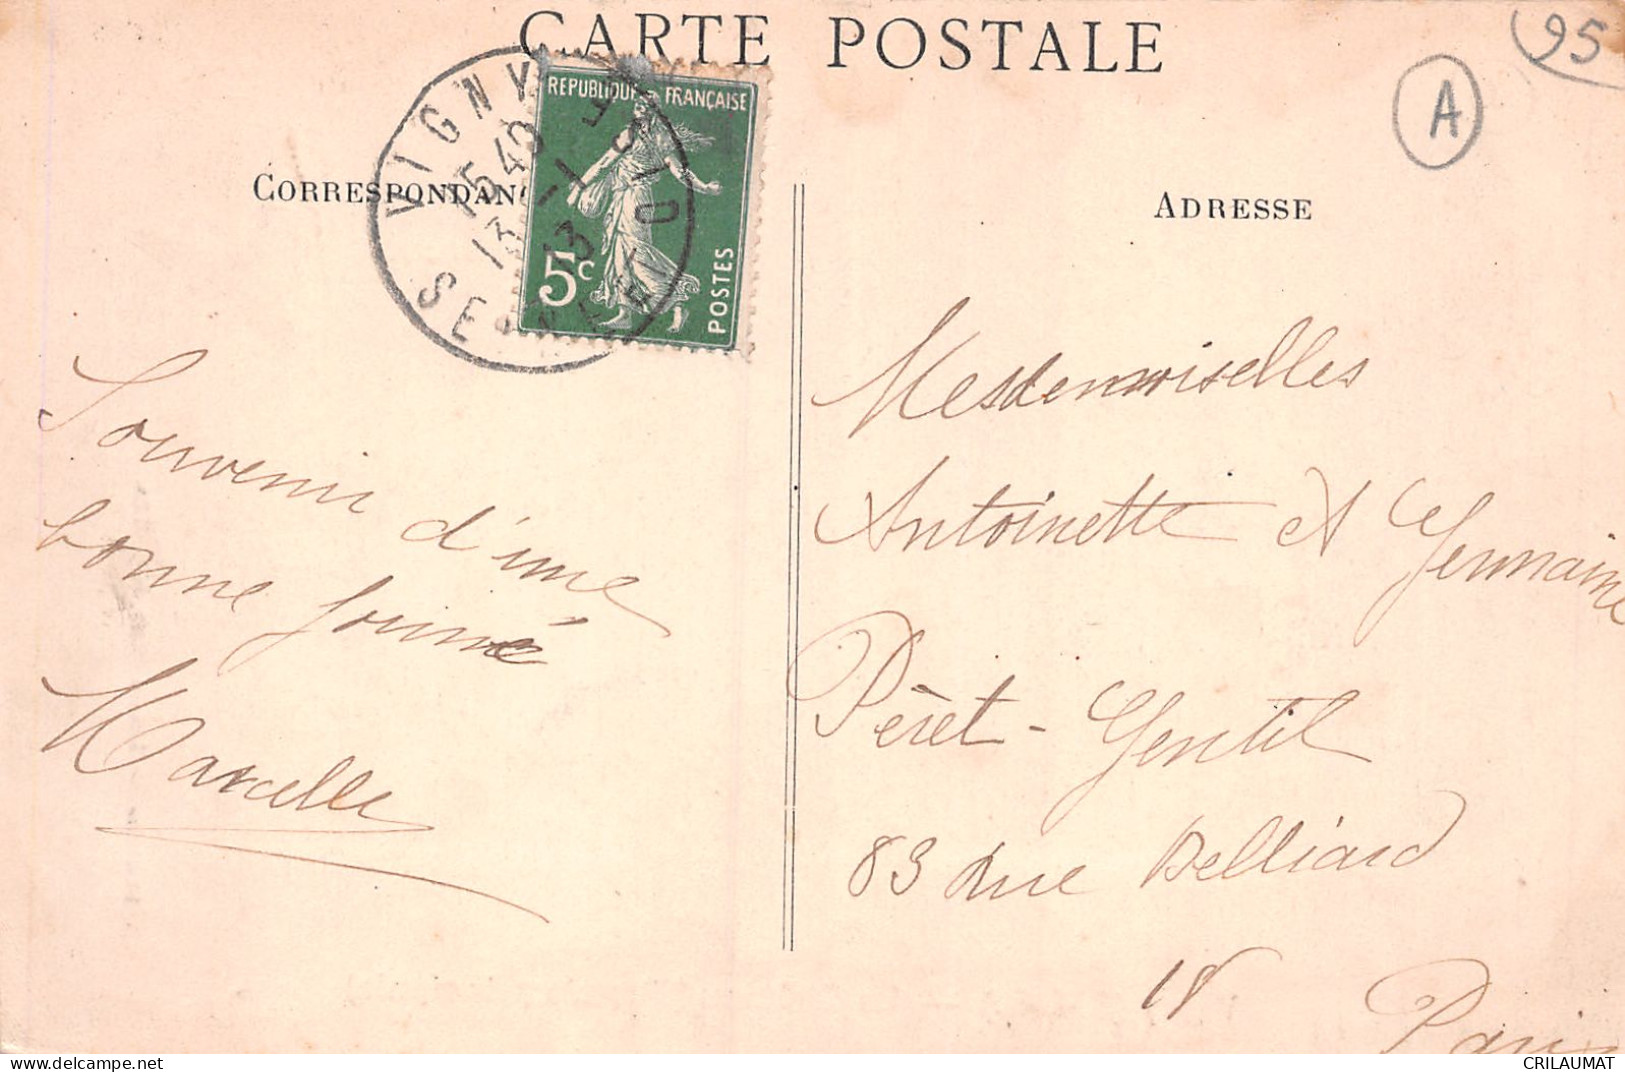 CARTE POSTALE
95
A
VIGNY
SEINE ET OISE
15 40
13 -1
13
REPUBLIQUE FRANÇAISE
5c
POSTES
CORRESPONDANC
ADRESSE
Souvenir d'une
bonne journé
Marcelle
Mesdemoiselles
Antoinette et Germaine
Pèret - Gentil
83 Rue Belliard
18
Paris
delcampe.net
CRILAUMAT